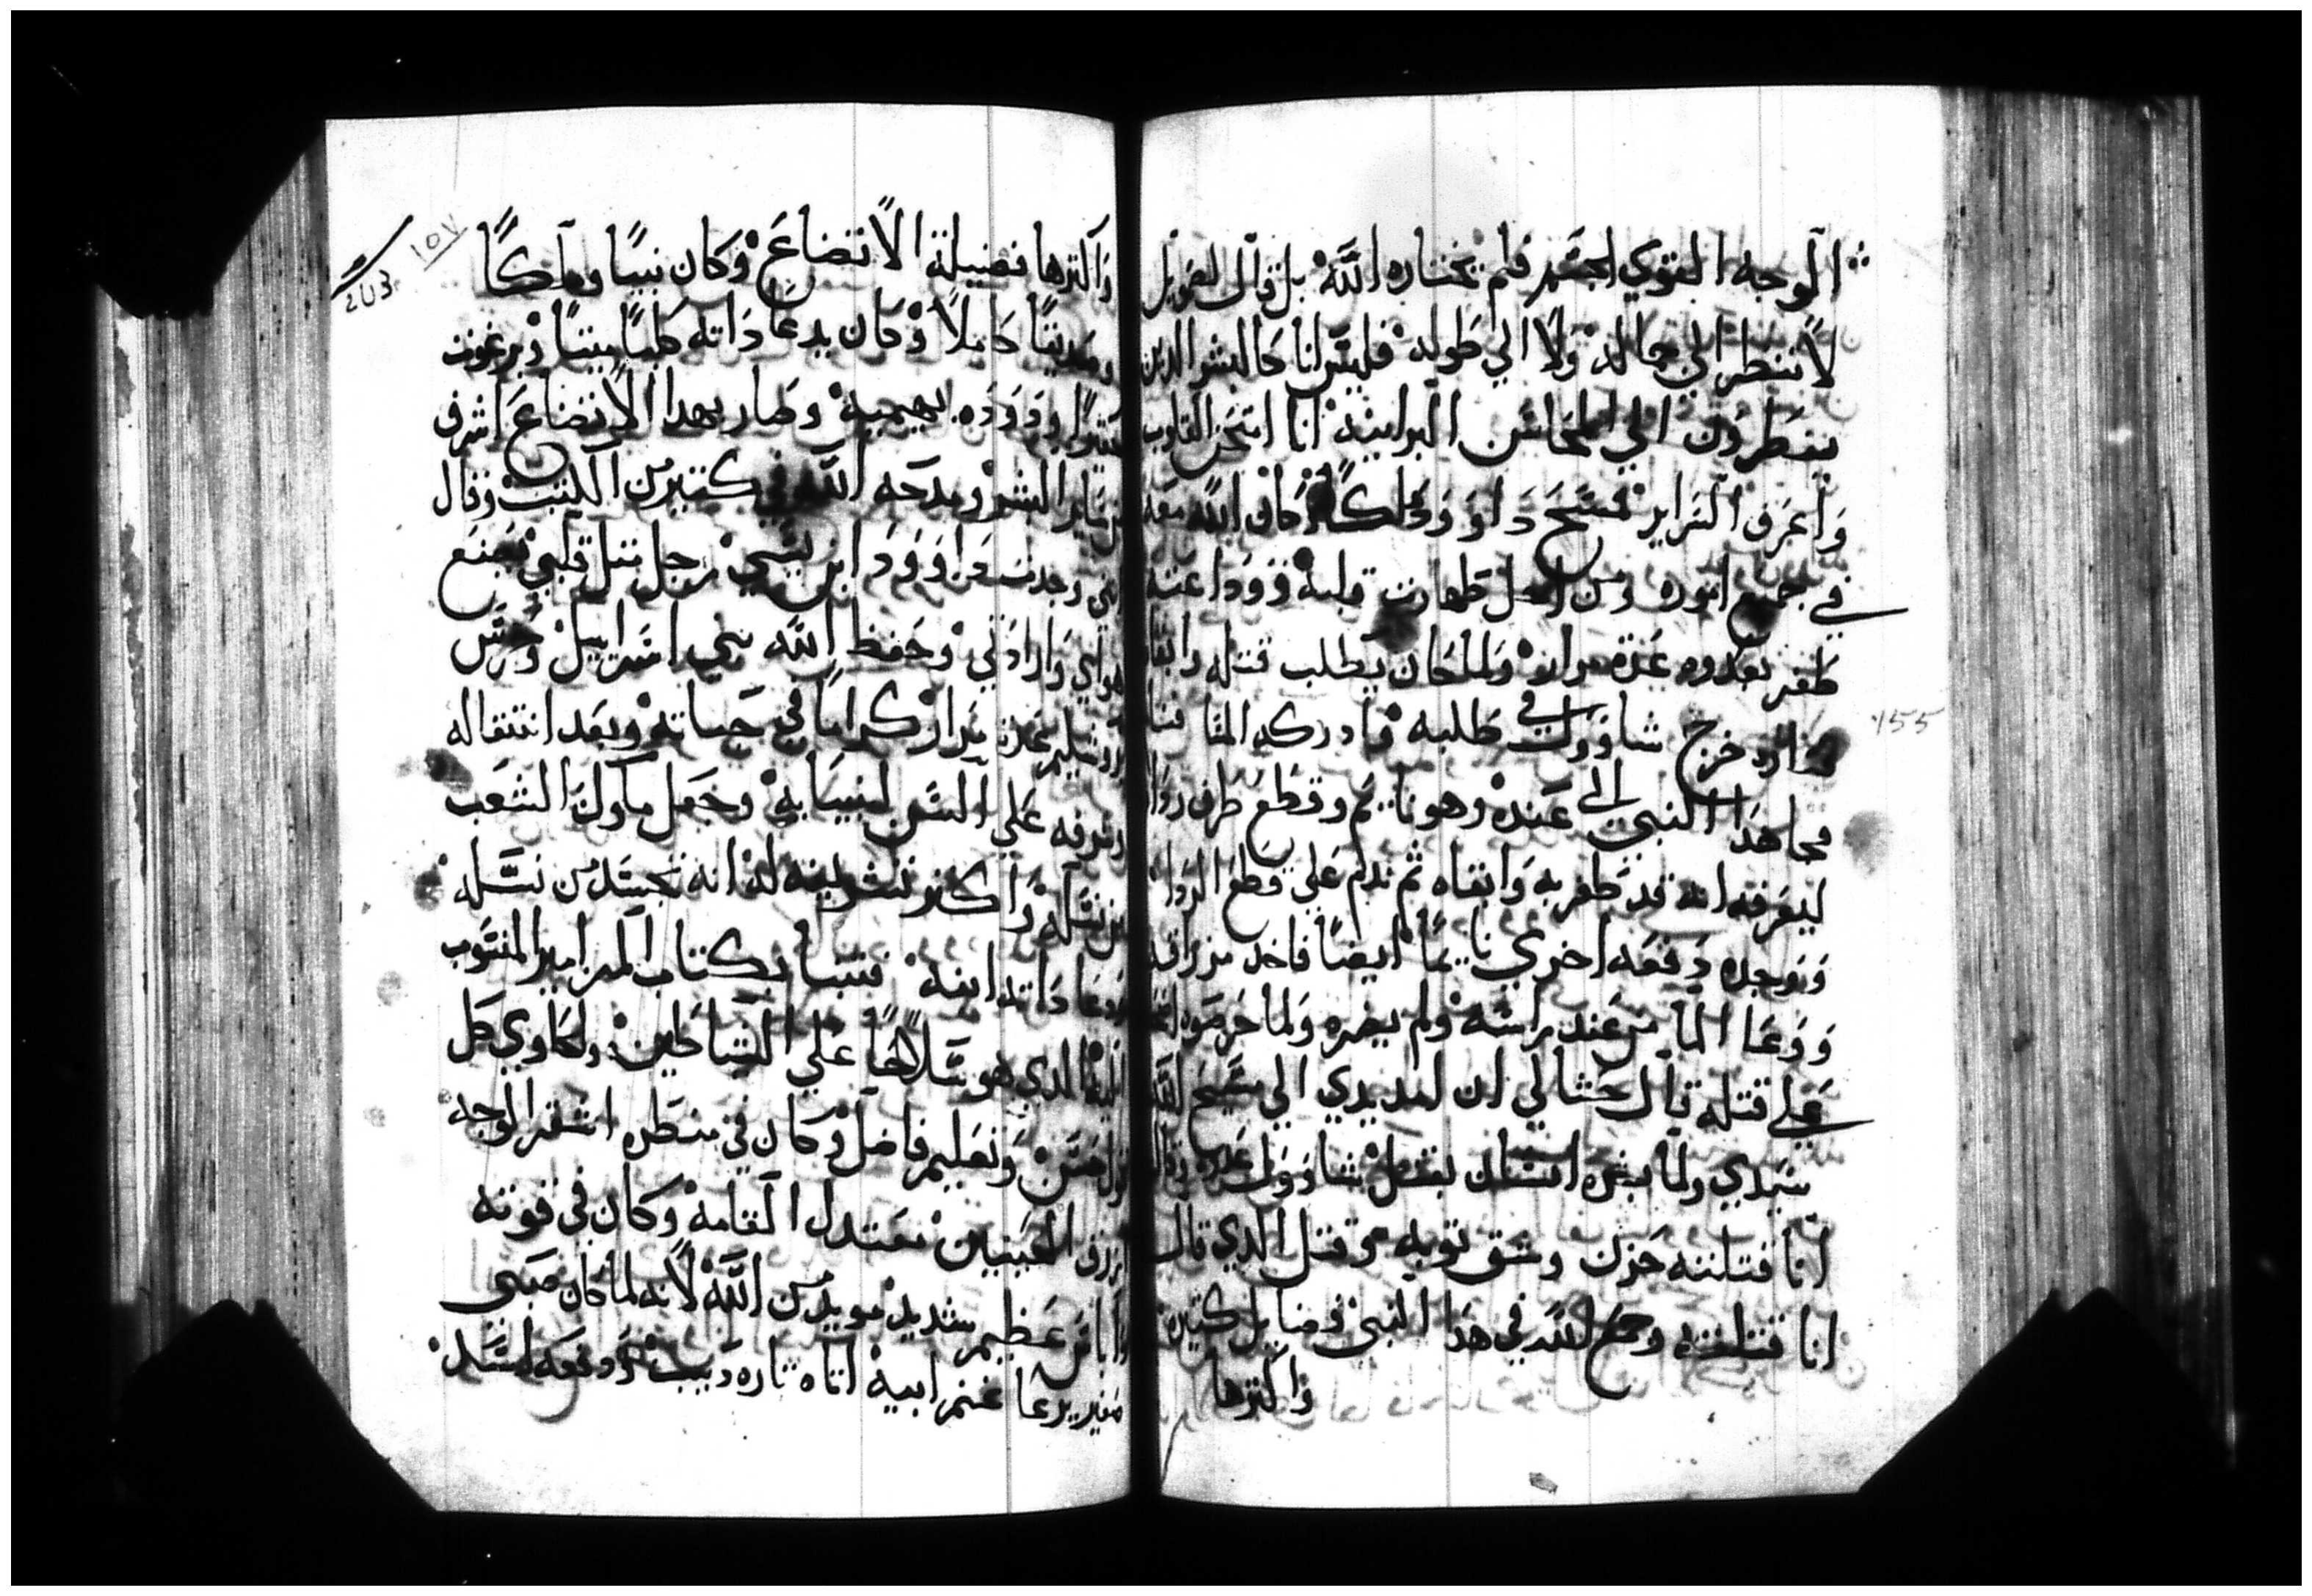 الوجه القوي الجسم فلم يختاره الله بل قال لصويل
لا تنظر الي جماله ولا الي طوله فليس انا كالبشر الدين
ينظرون الي المحاسن البرانيه انا امتحن القلوب
واعرف السراير فمسح داوود ملكا وكان الله معه
في جميع اموره ومن اجل طهارت قلبه ووداعته
ظفر بعدوه عدة مرار ولما كان يطلب قتله وابقاه
خرج شاوول في طلبه وادركه المقا
فجا هدا النبي الي عنده وهو نايم وقطع طرف ردا
ليعرفه انه قد ظفر به وابقاه ثم ندم علي قطع الردا
ووجده دفعه اخري نايما ايضا فاخد مزراقه
ووعا الما من عند راسه ولم يضره ولما حرضوه
علي قتله قال حشا لي ان امد يدي الي مسيح الله
سيدي ولما بشره انسان بقتل شاوول عدوه وقال
انا قتلته حزن وشق توبه وقتل الدي قال
انا قتلته وجمع الله في هدا النبي فضايل كتيره
واكترها
١٥٧
واكترها فضيلة الاتضاع وكان نبيا وملكا
وصديقا كاملا وكان يدعا داته كلبا ميتا وبرغوت
ودوده بهيميه وصار بهدا الاتضاع اشرف
من ساير البشر ومدحه الله في كتير من الكتب وقال
اني وجدت داوود ابن يسي رجل متل قلبي يصنع
هواي وارادتي وحفظ الله بني اسراييل وحرس
يروشليم عدة مرار كراما في حياته وبعد انتقاله
وشرفه علي السن انبيايه وجعل ملوك الشعب
من نسله واكتر تشريفه له انه تجسد من نسله
ودعا داته ابنه فتنبا بكتاب المزامير المنسوب
اليه الدي هو سلاحا علي الشياطين وحاوي كل
وتعليم فاضل وكان في منظره اشقر الوجه
ازرق العينين معتدل القامه وكان في قوته
وباس عظيم شديد مويد من الله لانه لما كان صبي
صغير يرعا غنم ابيه اتاه تاره ديب ودفعه اسد
155